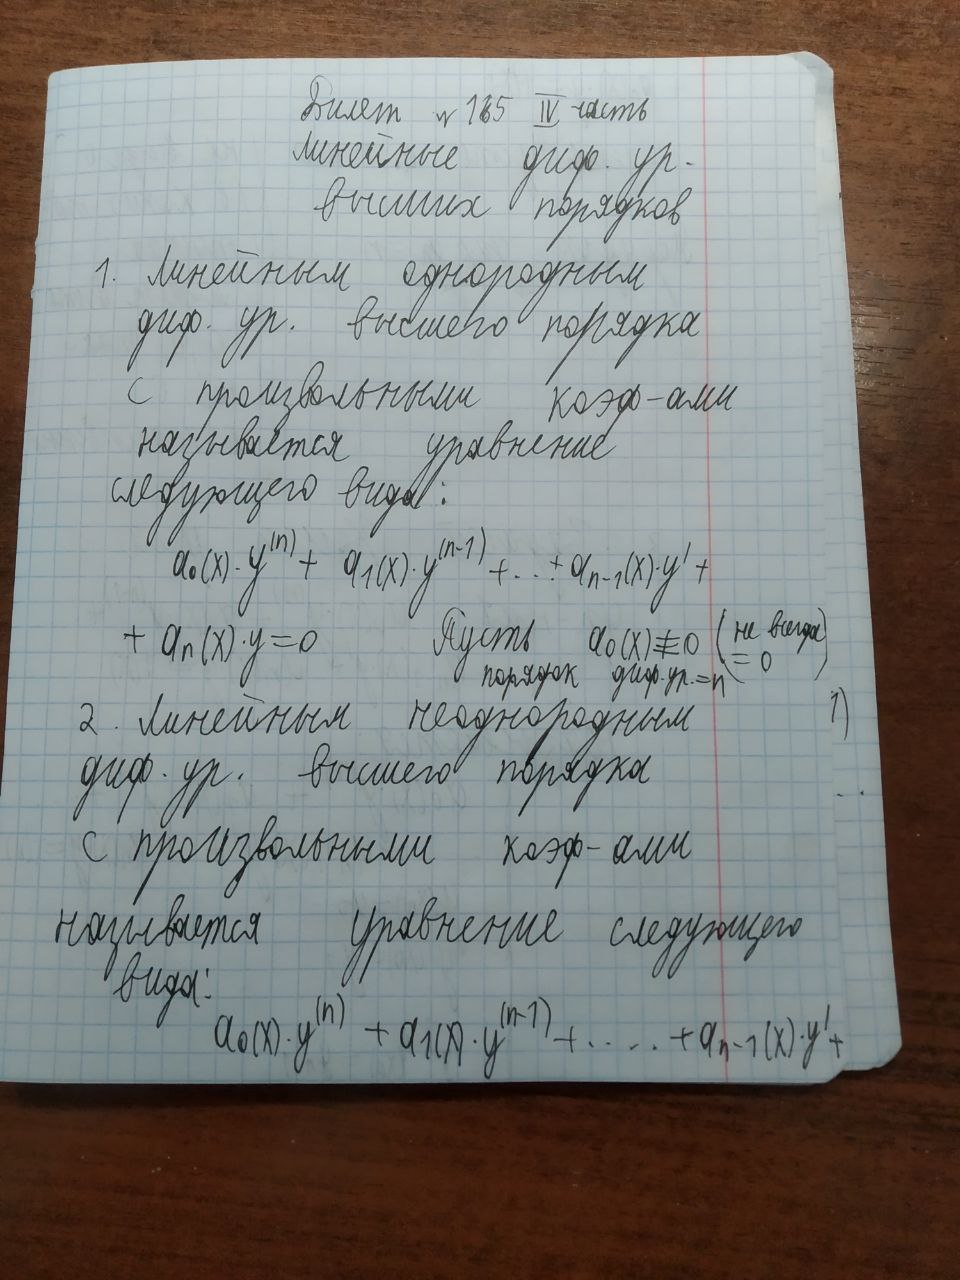 Билет № 165 IV часть
Линейные диф. ур.
высших порядков
1. Линейным однородным
диф. ур. высшего порядка
с произвольными коэф-ами
называется уравнение
следующего вида:
a₀(x)·y⁽ⁿ⁾ + a₁(x)·y⁽ⁿ⁻¹⁾ + ... + aₙ₋₁(x)·y' +
+ aₙ(x)·y = 0 Пусть a₀(x) ≢ 0 (не всегда = 0)
порядок диф. ур. = n
2. Линейным неоднородным
диф. ур. высшего порядка
с произвольными коэф-ами
называется уравнение следующего
вида:
a₀(x)·y⁽ⁿ⁾ + a₁(x)·y⁽ⁿ⁻¹⁾ + ..... + aₙ₋₁(x)·y' +